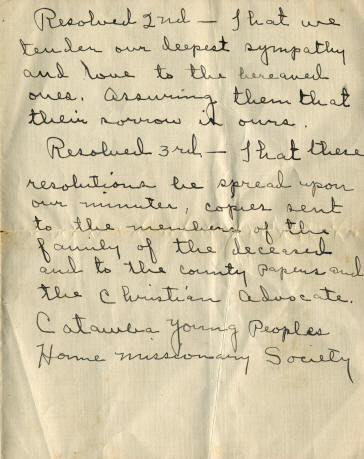 Resolved 2nd - That we
tender our deepest sympathy
and love to the bereaved
ones. Assuring them that
their sorrow is ours.
Resolved 3rd - That these
resolutions be spread upon
our minutes, copies sent
to the members of the
family of the deceased
and to the county papers and
the Christian Advocate.
Catawba Young Peoples
Home Missionary Society